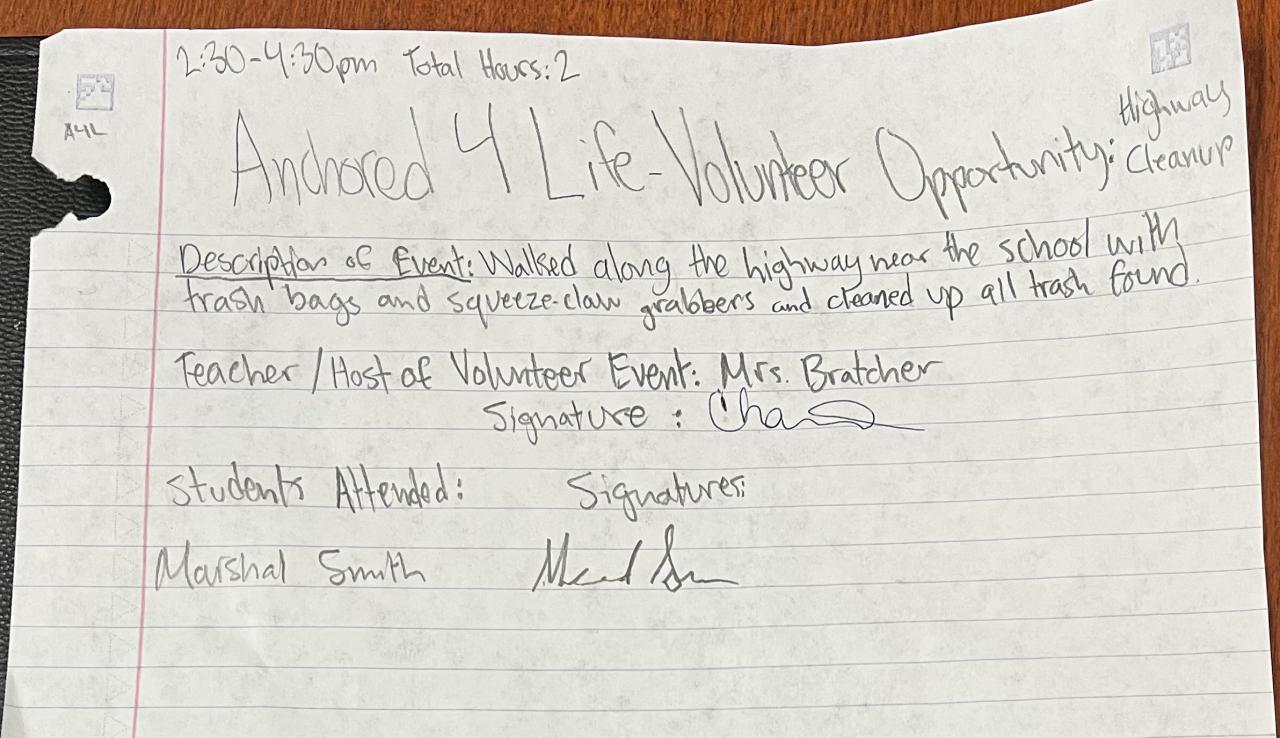 2:30-4:30pm Total Hours: 2
A4L
Anchored 4 Life-Volunteer Opportunity: Highway Cleanup
Description of Event: Walked along the highway near the school with
trash bags and squeeze-claw grabbers and cleaned up all trash found.
Teacher/Host of Volunteer Event: Mrs. Bratcher
Signature: Cha
Students Attended: Signatures:
Marshal Smith